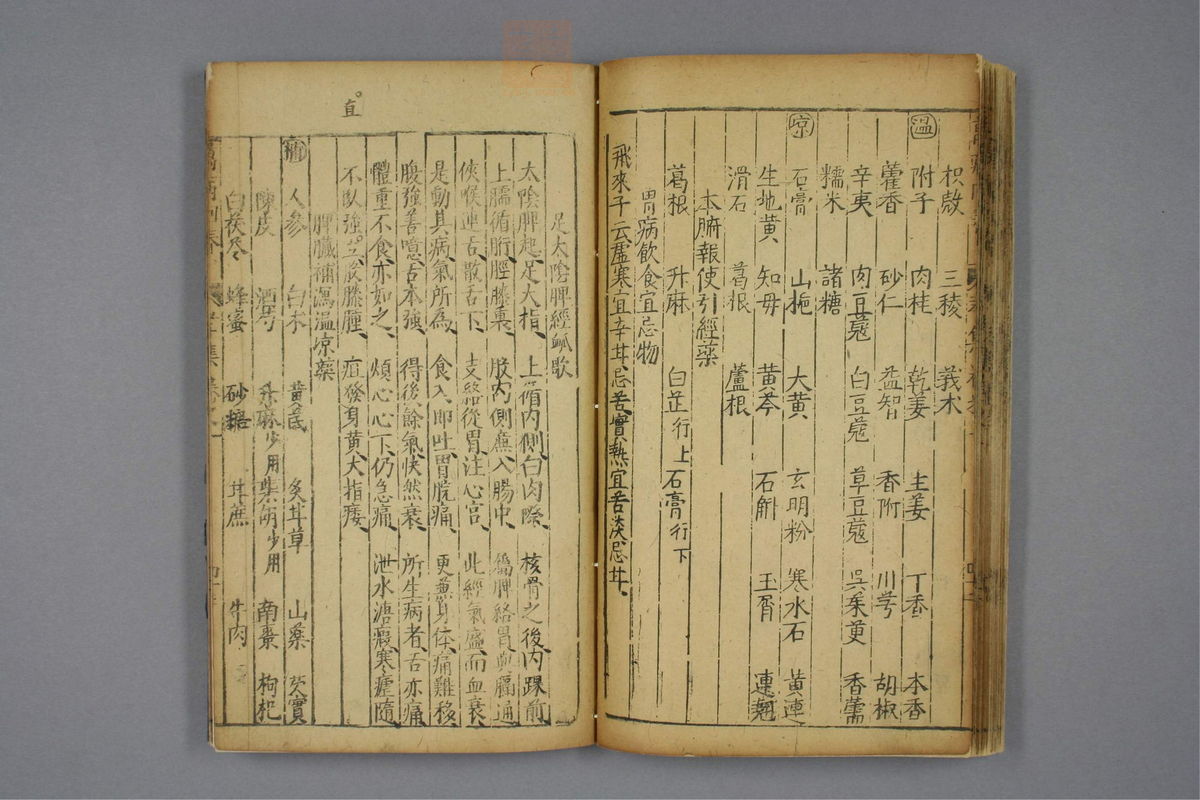 枳殼 三稜 莪朮
溫 附子 肉桂 乾姜 生姜 丁香 木香
藿香 砂仁 益智 香附 川芎 胡椒
辛夷 肉豆蔻 白豆蔻 草豆蔻 吳茱萸 香薷
糯米 諸糖
凉 石膏 山梔 大黃 玄明粉 寒水石 黃連
生地黃 知母 黃芩 石斛 玉屑 連翹
滑石 葛根 蘆根
本腑報使引經藥
葛根 升麻 白芷行上 石膏行下
胃病飲食宜忌物
飛來子云虛寒宜辛甘忌苦實熱宜苦淡忌甘
足太陰脾經 歌
太陰脾起足大指 上循內側白肉際 核骨之後內踝前
上臑循胻脛膝裏 股內側廉入腸中 屬脾絡胃 膈通
俠喉連舌散舌下 支絡從胃注心宮 此經氣盛而血衰
是動其病氣所為 食入即吐胃脘痛 更兼身体痛難移
腹強善噫舌本強 得後餘氣快然衰 所生病者舌亦痛
體重不食亦如之 煩心心下仍急痛 泄水溏瘕寒瘧隨
不臥強立股膝腫 疸發身黃大指痿
脾臟補瀉溫凉藥
補 人參 白朮 黃芪 炙甘草 山藥 芡實
陳皮 酒芍 升麻少用 柴胡少用 南棗 枸杞
白茯苓 蜂蜜 砂糖 甘蔗 牛肉
直